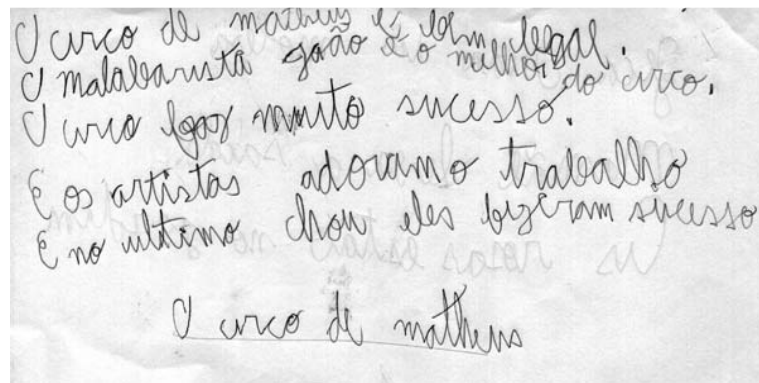 O circo de matheus é bem legal.
O malabarista joão é o melhor do circo.
O circo faz muito sucesso.
E os artistas adoramo trabalho
E no ultimo chou eles fizeram sucesso
O circo de matheus